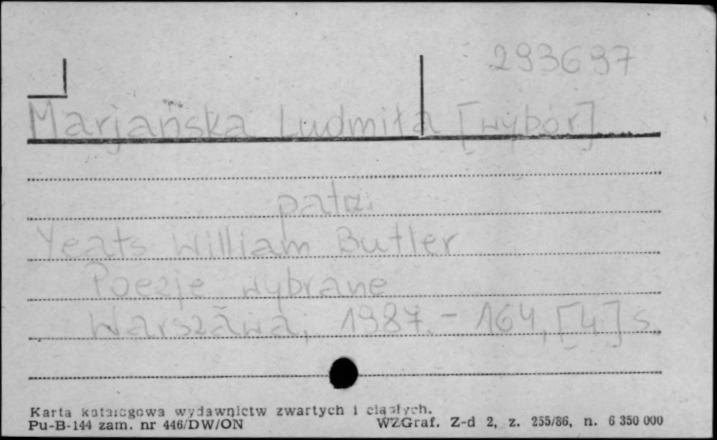 293697
Marjańska Ludmiła [wybór]
patrz
Yeats William Butler
Poezje wybrane
Warszawa, 1987. - 164, [4] s.
Karta katalogowa wydawnictw zwartych i ciągłych.
Pu-B-144 zam. nr 446/DW/ON WZGraf. Z-d 2, z. 255/86, n. 6 350 000